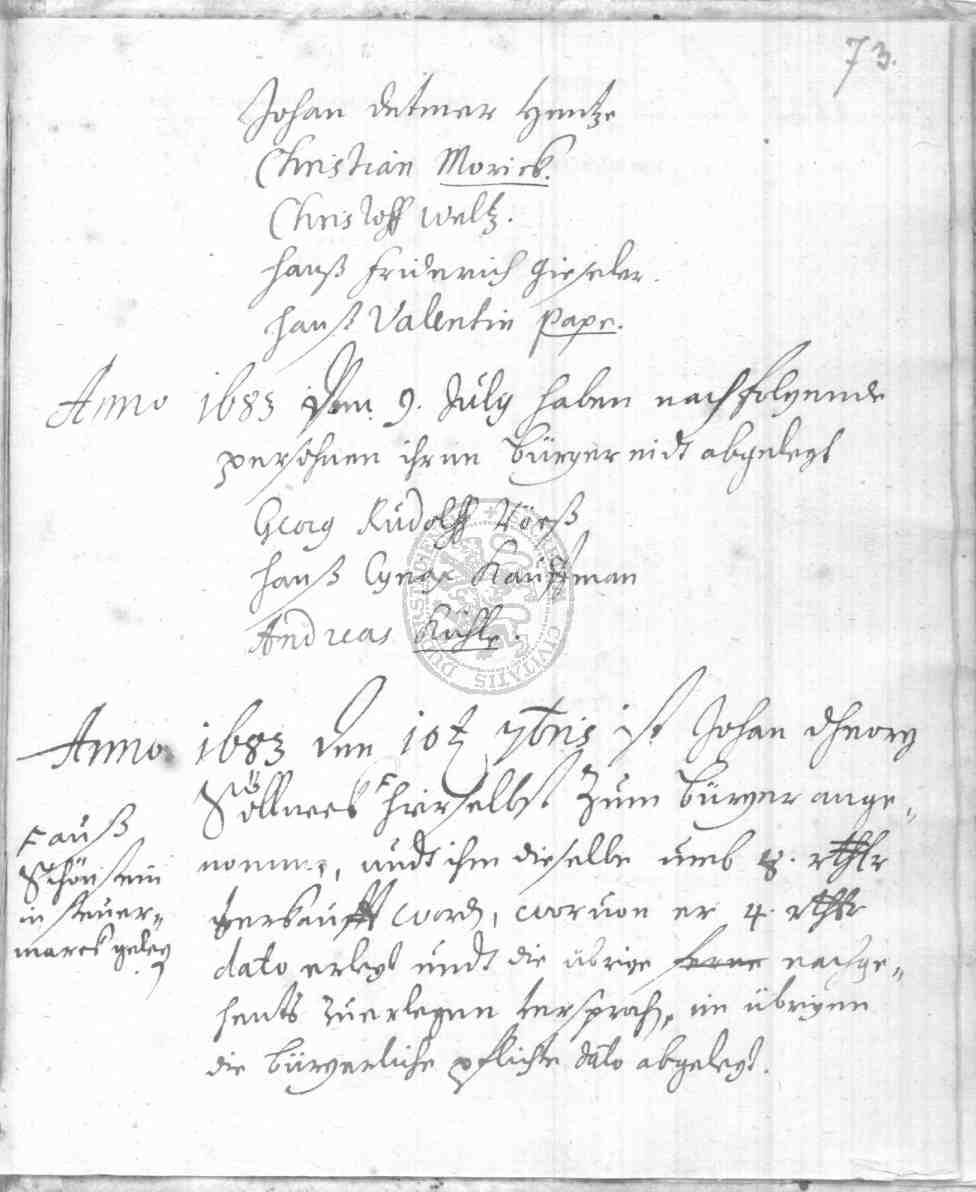 73.
Johan Detmer Hentze
Christian Morick.
Christoff Weltz.
Hanß Friderich Gieseler.
Hanß Valentin Pape.
Anno 1683 Den 9. July haben nachfolgende
persohnen ihren Bürger eidt abgelegt
Georg Rudolff Vöeß
Hanß Kauffman
Andreas Kuhle.
Anno 1683 den 10t 7bris ist Johan
hierselbst Zum Bürger ange„
nommen, undt ihm dieselbe umb 8. rthlr
verkaufft word, worvon er 4. rthlr
dato erlegt undt die übrige nachge„
hents zuerlegen versproch, im übrigen
die Bürgerliche pflichte dato abgelegt.
F auß
Schönstein
in steuer„
marck geleg
SIGILLUM CIVITATIS DUDERSTADIENSIS